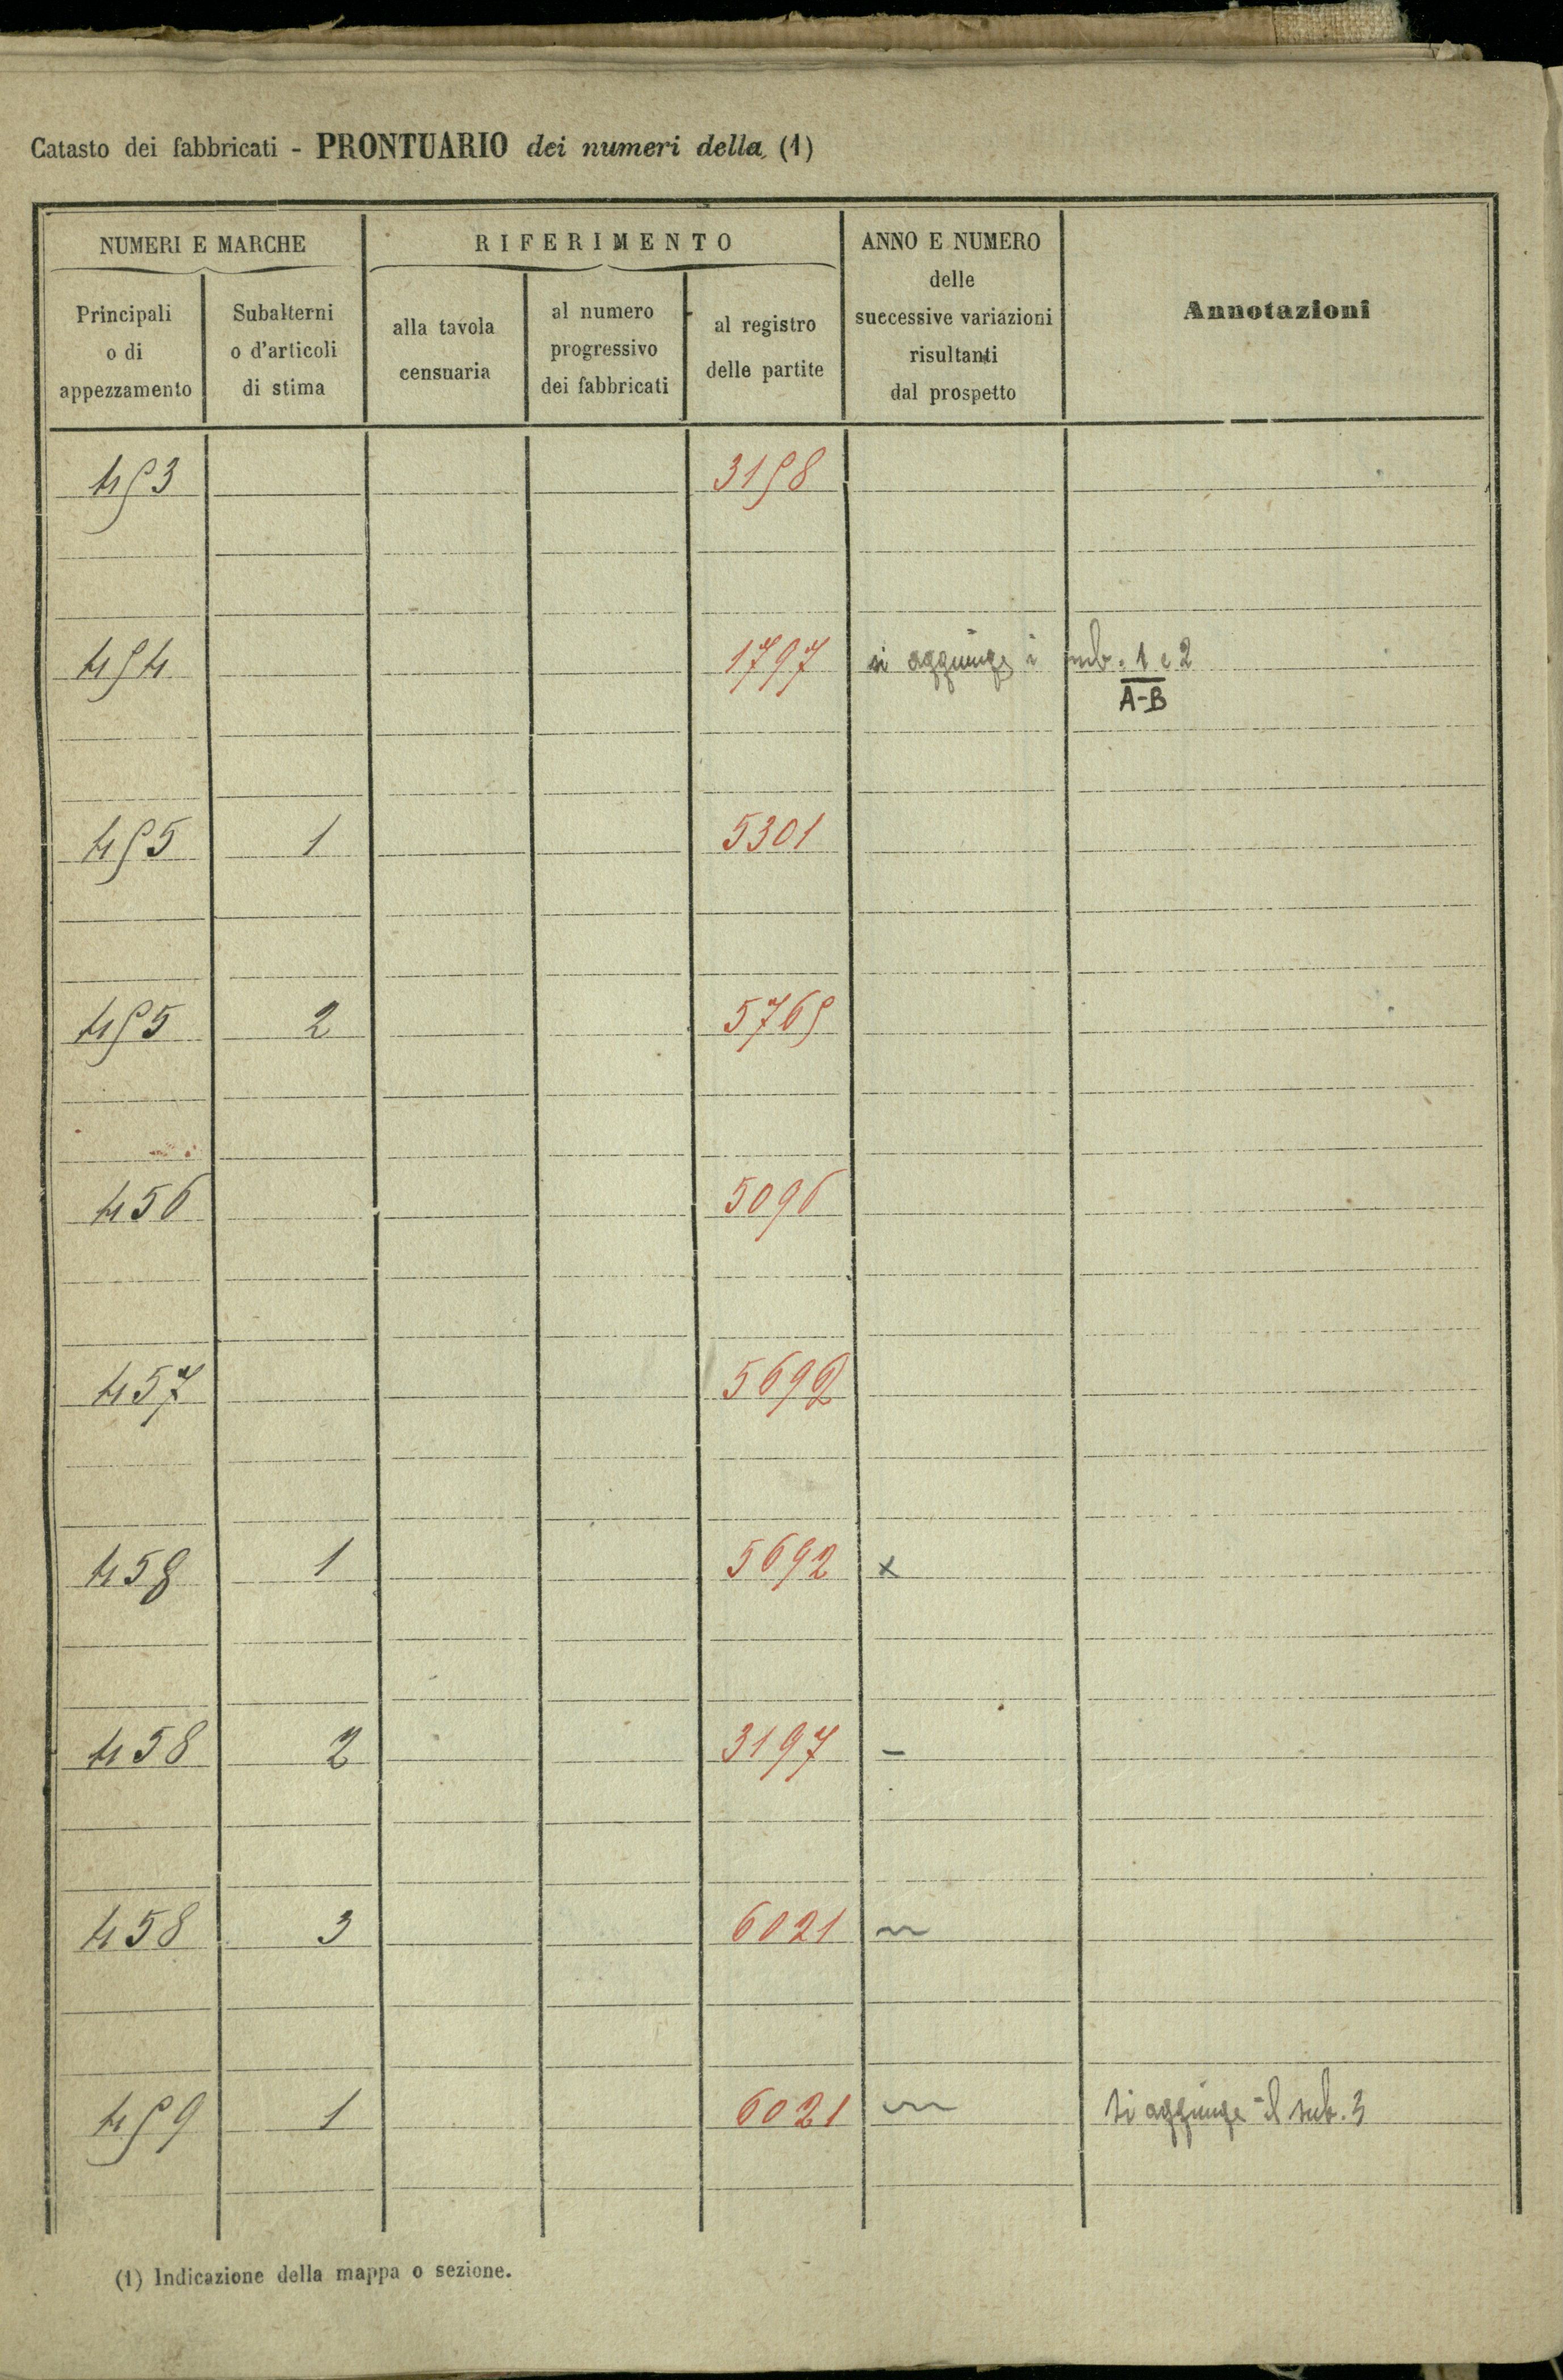 Catasto dei fabbricati - PRONTUARIO dei numeri della (1)
NUMERI E MARCHE
RIFERIMENTO
ANNO E NUMERO
delle
successive variazioni
risultanti
dal prospetto
Annotazioni
Principali
o di
appezzamento
Subalterni
o d'articoli
di stima
alla tavola
censuaria
al numero
progressivo
dei fabbricati
al registro
delle partite
453 3158
454 1797 si aggiunge i sub. 1 e 2
A-B
455 1 5301
455 2 5765
456 5096
457 5692
458 1 5692 x
458 2 3197 –
458 3 6021 ~
459 1 6021 ~ Si aggiunge il sub. 3
(1) Indicazione della mappa o sezione.